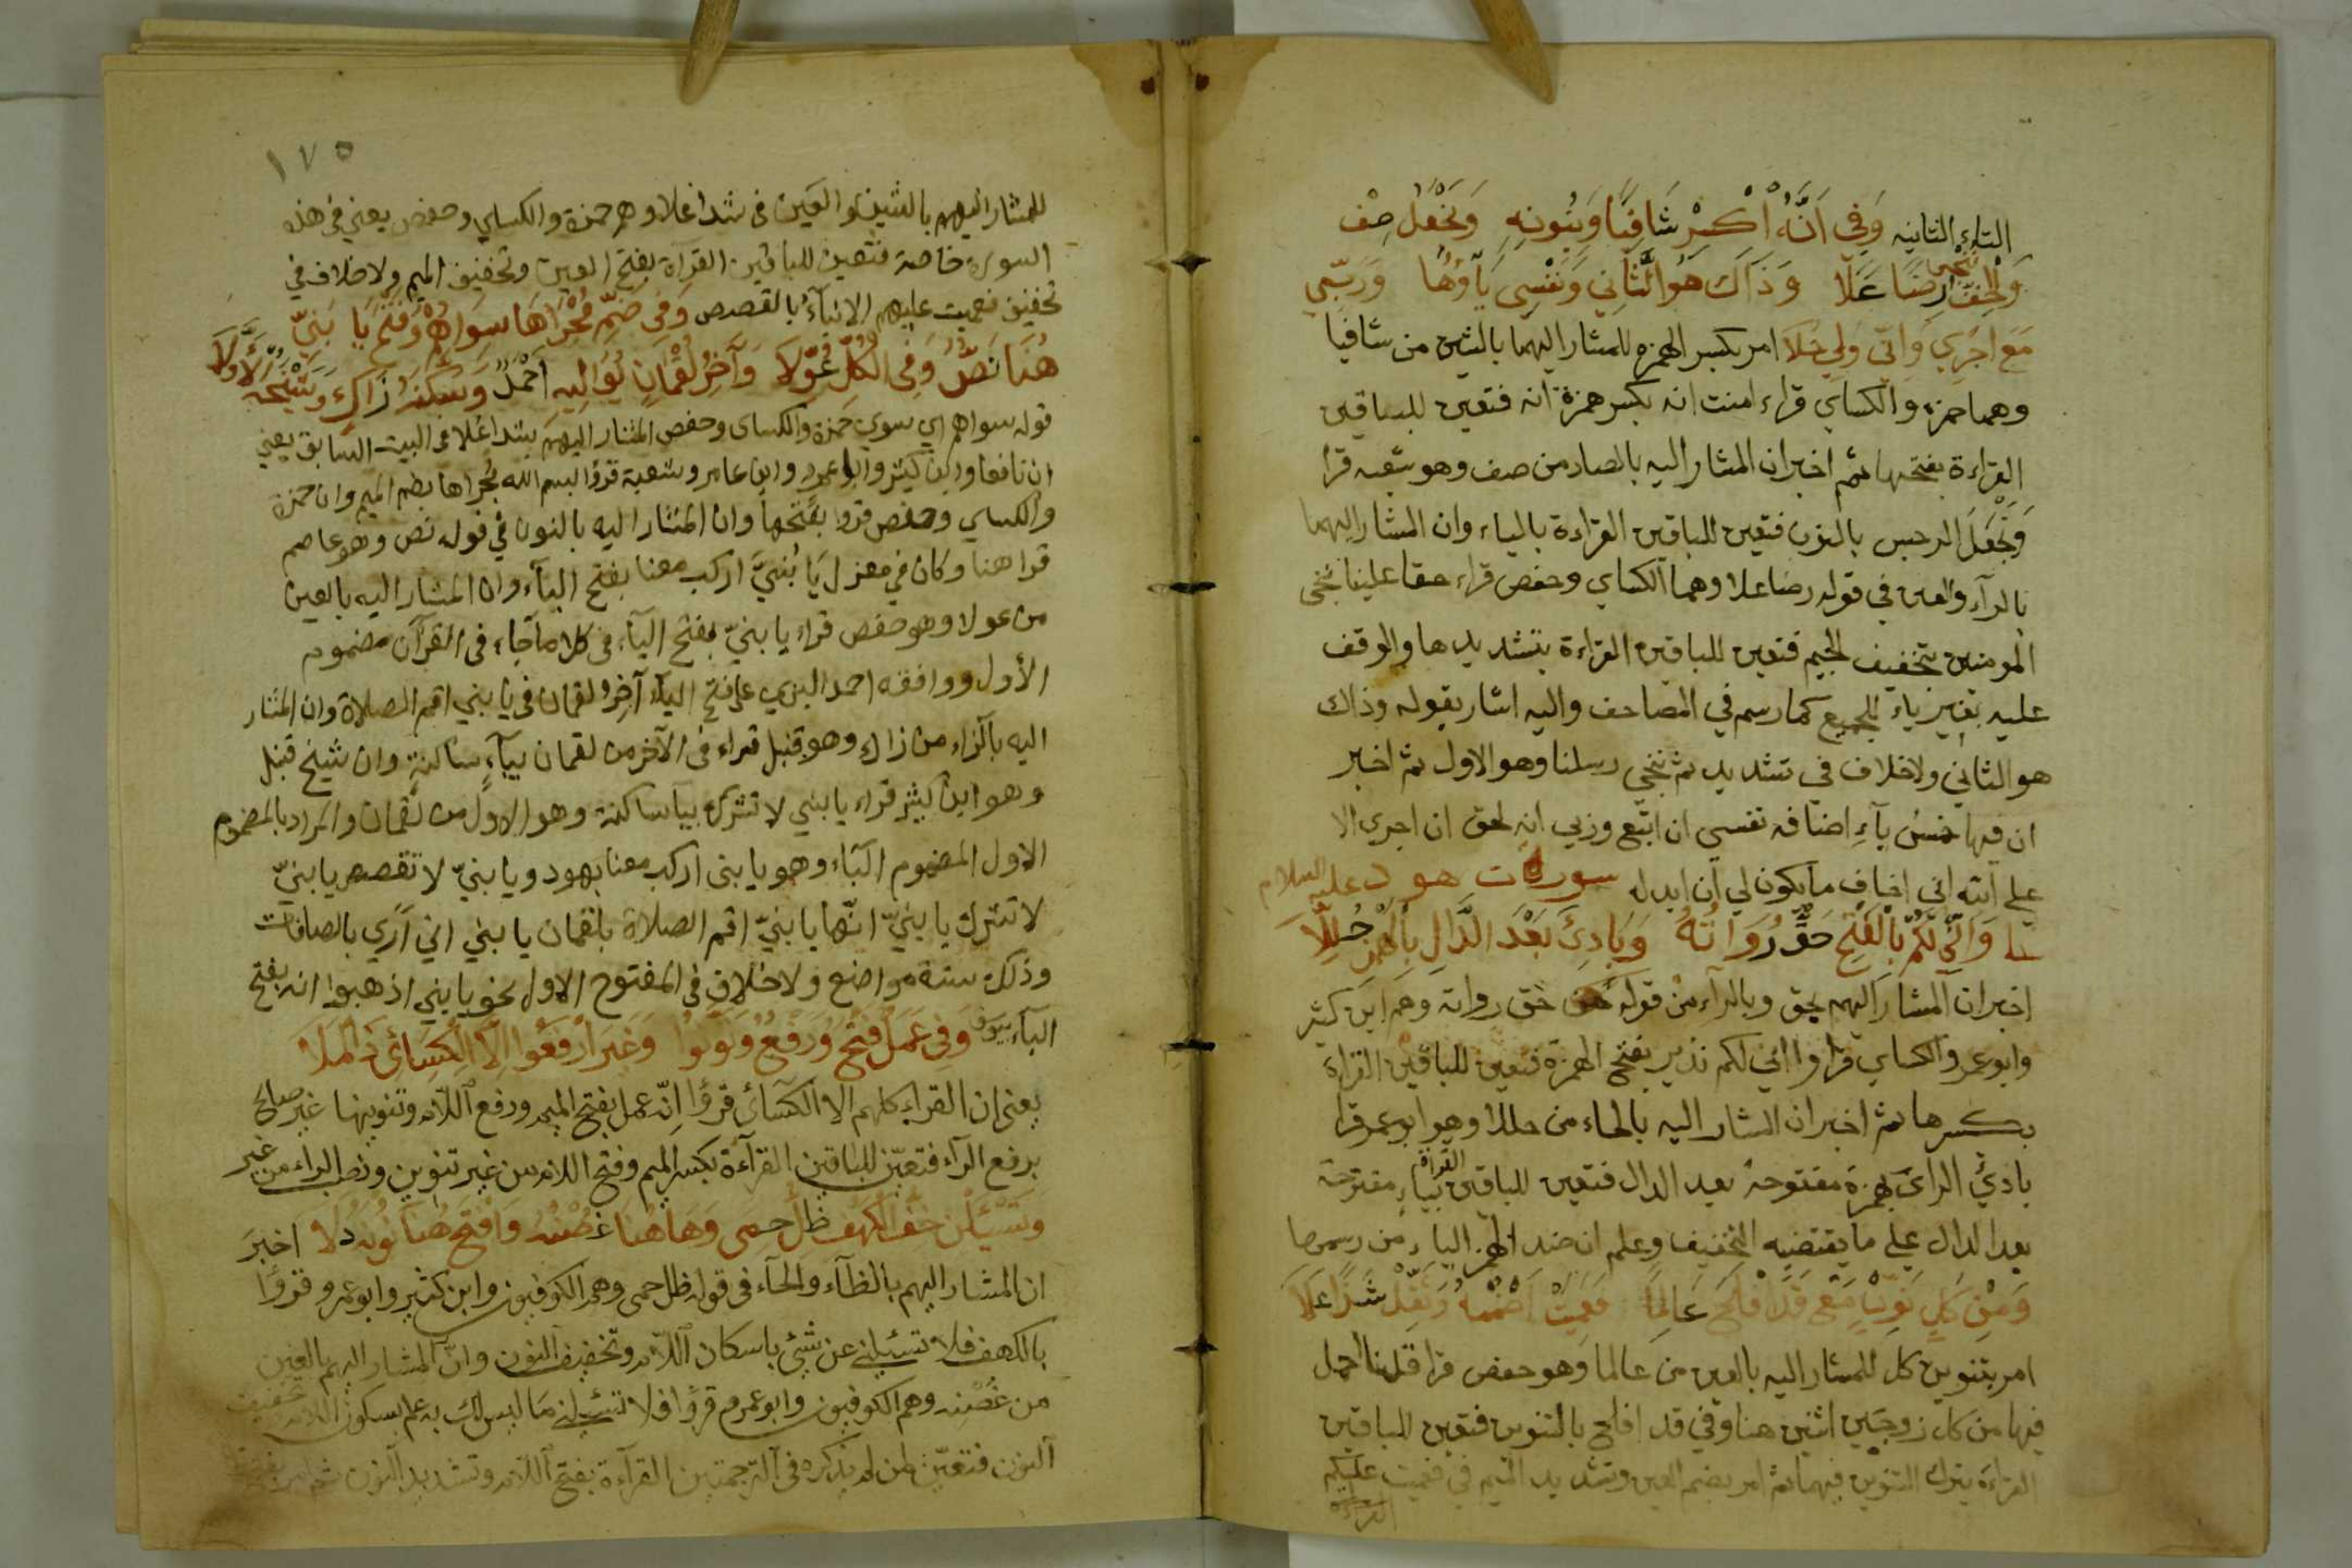 التاء الثانيه وَفِي اَنَّهُ اكْسِرْ شَافِيًا وَبِنُونِهِ وَنَجْعَلُ صِفْ
وَالْخِفُّ نُنْجِي رِضًا عَلَا وَذَاكَ هُوَ الثَّانِي وَنَفْسِي يَاؤُهَا وَرَبِّي
مَعَ اَجْرِي وَاِنِّي وَلِي حُلَا امر بكسر الهمزه للمشار اليهما بالشين من شافيا
وهما حمزه والكساي قراء امنت انه بكسر همزة انه فتعين للباقين
القراءة بفتحها ثم اخبر ان المشار اليه بالصاد من صف وهو شعبه قرا
وَنَجْعَلَ الرجس بالنون فتعين للباقين القراءة بالياء وان المشار اليهما
بالرآء والعين في قوله رضا علا وهما الكساي وحفص قراء حقا علينا ننجى
المومنين بتخفيف الجيم فتعين للباقين القراءة بتشديدها والوقف
عليه بغير ياء للجميع كما رسم في المصاحف واليه اشار بقوله وذاك
هو الثاني ولا خلاف في تشديد ثم ننجى رسلنا وهو الاول ثم اخبر
ان فيها خمس يآءِ اضافه نفسي ان اتبع وربي انه لحق ان اجري الا
على الله اني اخاف ما يكون لي ان ابدله سورة هود عليه السلام
وَاِنِّي لَكُمْ بِالْفَتْحِ حَقُّ رُوَاتُهُ وَبَادِئَ بَعْدَ الدَّالِ بِالْهَمْزِ حُلِّلَا
اخبر ان المشار اليهم بحق وبالراء من قوله حق رواته وهم ابن كثير
وابو عمرو والكساي قراوا اني لكم نذير بفتح الهمزة فتعين للباقين القراءة
بكسرها ثم اخبر ان المشار اليه بالحاء من حللا وهو ابو عمرو قرا
بادئَ الرأى بهمزة مفتوحة بعد الدال فتعين للباقين القراة بياءٍ مفتوحة
بعد الدال على ما يقتضيه التخفيف وعلم ان ضد الهمز الياء من رسمها
وَمِنْ كُلٍّ نَوِّنْ مَعْ قَدَ افْلَحَ عَالِمًا فَعُمِّيَتْ اضْمُمْهُ وَثَقِّلْ شَذًا عَلَا
امر بتنوين كل للمشار اليه بالعين من عالما وهو حفص قرا قلنا احمل
فيها من كل زوجين اثنين هنا وفي قد افلح بالتنوين فتعين للباقين
القراءة بترك التنوين فيهما ثم امر بضم العين وتشديد الميم في فعميت عليكم
القراءة
١٧٥
للمشار اليهم بالشين والعين فى شذا علا وهم حمزة والكساي وحفص يعني في هذه
السورة خاصة فتعين للباقين القرآة بفتح العين وتخفيف الميم ولا خلاف في
تخفيف فعميت عليهم الانبآء بالقصص وَفِى ضَمِّ مُجْرَاهَا سِوَاهُمْ وَفَتْحُ يَا بُنَيِّ
هُنَا نَصٌّ وَفِى الْكُلِّ عُوِّلَا وَآخِرُ لُقْمَانٍ يُوَالِيهِ اَحْمَدٌ وَسَكَّنَهُ زَاكٍ وَشَيْخُهُ الْأَوَّلَا
قوله سواهم اي سوي حمزة والكساى وحفص المشار اليهم بشذا علا فى البيت السابق يعني
ان نافعا وابن كثير وابا عمرو وابن عامر وشعبة قرؤا بسم الله مُجراها بضم الميم وان حمزة
والكساي وحفص قرؤا بفتحها وان المشار اليه بالنون في قوله نص وهو عاصم
قرا هنا وكان في معزل يَا بُنيَّ اركب معنا بفتح اليآء وان المشار اليه بالعين
من عولا وهو حفص قراء يا بنيّ بفتح اليآء فى كل ما جاء فى القرآن مضموم
الأول ووافقه احمد البزي على فتح اليآء آخِر لقمان فى يا بني اقم الصلاة وان المشار
اليه بالزاء من زاك وهو قنبل قراء فى الآخر من لقمان بيآءٍ ساكنةٍ وان شيخ قنبل
وهو ابن كثير قراء يا بني لا تشرك بيا ساكنة وهو الاوّل من لقمان والمراد بالمضموم
الاول المضموم البَاء وهو يا بنى اركب معنا بهود ويا بنيّ لا تقصص يا بنيّ
لا تشرك يا بنيّ انّها يا بنيّ اقم الصلاة بلقمان يا بني اني اَرَي بالصافات
وذلك ستة مواضع ولا خلاف في المفتوح الاول نحو يا بني اذهبوا انه بفتح
البآء وَفِي عَمَلٌ فَتْحٌ وَرَفْعٌ وَنَوِّنُوا وَغَيْرَ ارْفَعُوا اِلَّا الْكِسَائِيَّ ذَا الْمَلَا
يعنى ان القراء كلهم الا الكسائى قرؤا اِنّه عمل بفتح الميم ورفع اللام وتنوينها غير صالح
برفع الرآء فتعيّن للباقين القرآءة بكسر الميم وفتح اللام من غير تنوين ونصب الراء من غير
وَتَسْئَلْنِ خِفُّ الْكَهْفِ ظِلُّ حِمًى وَهَا هُنَا غُصْنُهُ وَافْتَحْ هُنَا نُونَهُ دَلَا اخبرَ
ان المشار اليهم بالظآء والحآء فى قوله ظل حمى وهم الكوفيون وابن كثير وابو عمرو قرؤا
بالكهف فلا تسئلني عن شئ باسكان اللآم وتخفيف النون وانّ المشار اليهم بالغين
من غُصْنه وهم الكوفيون وابو عمرو قرؤا فلا تسئلن مَا ليس لك به علم بسكون اللام وتخفيف
النون فتعيّن لمن لم يذكره فى الترجمتين القرآءة بفتح اللام وتشديد النون ثم امر بفتح